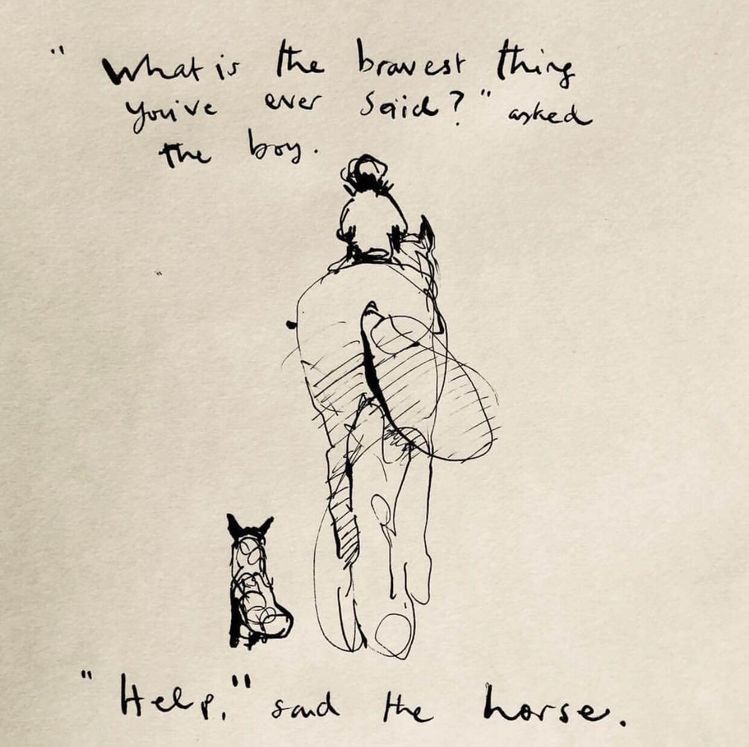 " What is the bravest thing
you've ever said?" asked
the boy.
"Help," said the horse.